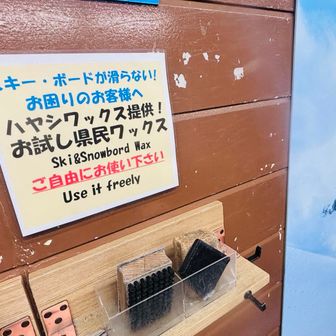 スキー・ボードが滑らない!
お困りのお客様へ
ハヤシワックス提供!
お試し県民ワックス
Ski&Snowbord Wax
ご自由にお使い下さい
Use it freely